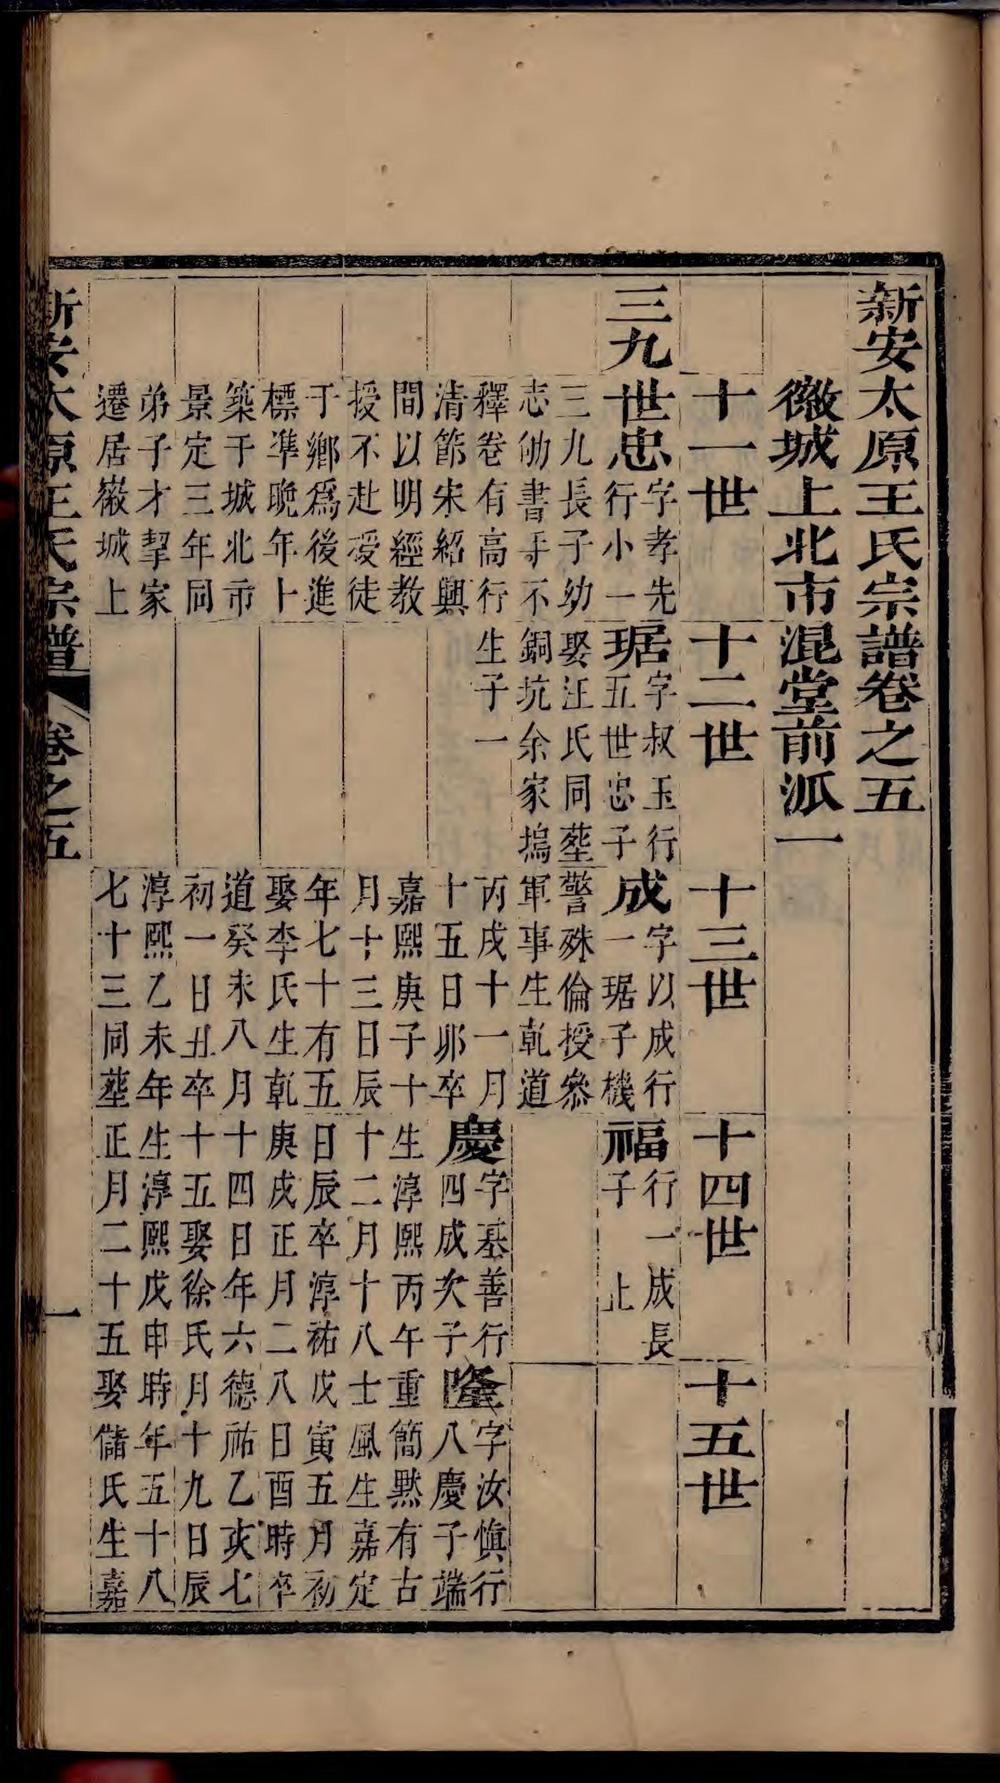 新安太原王氏宗譜卷之五
徽城上北市混堂前派一
十一世
十二世
十三世
十四世
十五世
三九
世忠
字孝先
行小一
三九長子幼
志劬書手不
釋卷有高行
清節宋紹興
間以明經教
授不赴授徒
于鄉爲後進
標準晩年卜
築于城北市
景定三年同
弟子才挈家
遷居徽城上
琚
字叔玉行
五世忠子
娶汪氏同塟
銅坑余家塢
生子一
成
字以成行
一琚子機
警殊倫授叅
軍事生乾道
丙戌十一月
十五日卯卒
嘉熙庚子十
月十三日辰
年七十有五
娶李氏生乾
道癸未八月
初一日丑卒
淳熙乙未年
七十三同塟
福
行一成長
子 止
慶
字基善行
四成次子
生淳熙丙午
十二月十八
日辰卒淳祐
庚戌正月二
十四日年六
十五娶徐氏
生淳熙戊申
正月二十五
隆
字汝愼行
八慶子端
重簡默有古
士風生嘉定
戊寅五月初
八日酉時卒
德祐乙亥七
月十九日辰
時年五十八
娶儲氏生嘉
新安太原王氏宗譜 卷之五 一